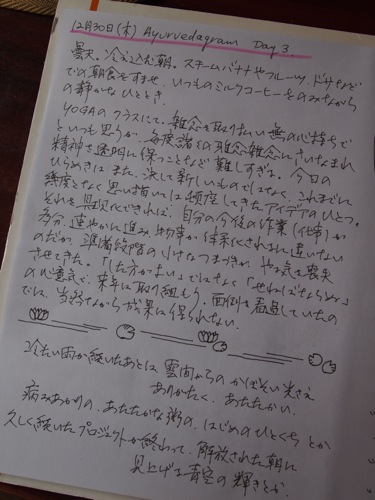 12月30日(木) Ayurvedagram Day 3.
曇天、冷え込む朝。スチームバナナやフルーツ、ドサなど
での朝食をすませ、いつものミルクコーヒーをのみながら
の静かなひととき。
YOGAのクラスにて、雑念を取り払い無の心持ちで
といつも思うが、毎度諸々の雑念雑念にさいなまれ
精神を透明に保つことなど難しすぎる。今日の
ひらめきはまた、決して新しいものではなく、これまでに
幾度となく思い描いては頓座してきたアイデアのひとつ。
それを具現化できれば、自分の今後の作業(仕事)が
多分、速やかに進み、物事が体系化されるに違いない
のだが、準備段階の小さなつまづきが、やる気を喪失
させてきた。「した方がよい」ではなく「せねばならぬ」
の心意気で、来年に取り組もう。面倒を看過していたの
では、当然ながら成果は得られない。
冷たい雨が続いたあとは、雲間からの かぼそい光さえ
ありがたく、あたたかい。
病みあがりの、あたたかな粥の、はじめのひとくち とか
久しく続いたプロジェクトが終わって、解放された朝に
見上げる青空の輝きとか